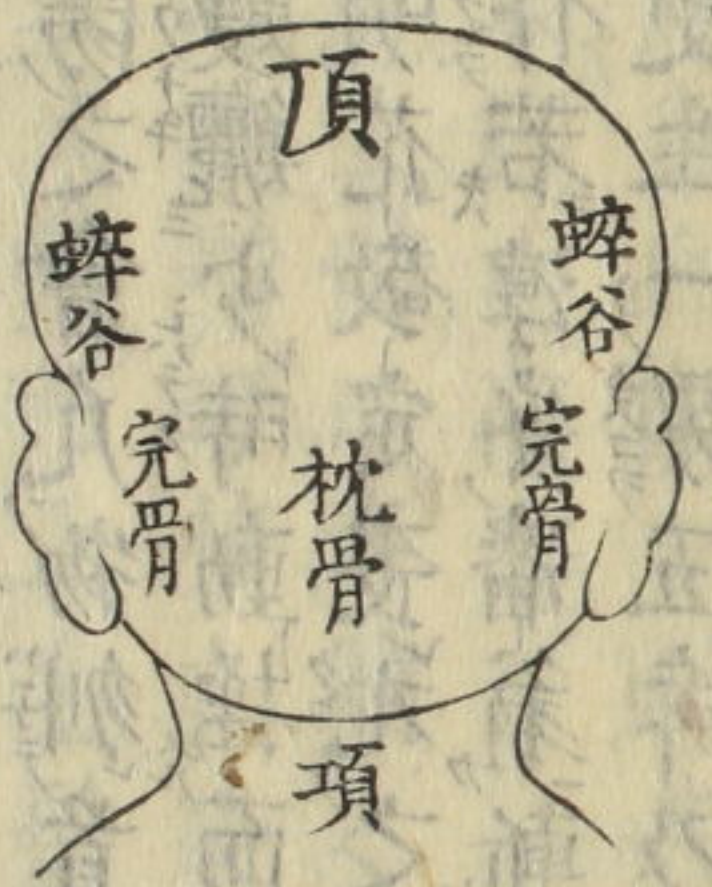 頂
蜶谷
蜶谷
完骨
枕骨
完骨
項